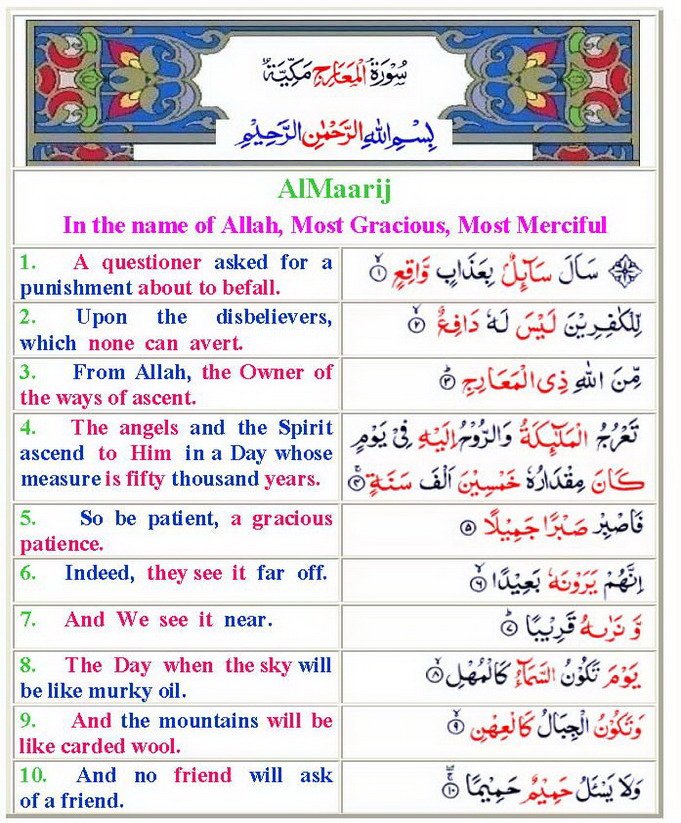 سُوْرَةُ الْمَعَارِجِ مَكِّيَّةٌ
بِسْمِ اللهِ الرَّحْمٰنِ الرَّحِيْمِ
AlMaarij
In the name of Allah, Most Gracious, Most Merciful
1. A questioner asked for a
punishment about to befall.
سَاَلَ سَآئِلٌۢ بِعَذَابٍ وَّاقِعٍ ۙ‏﴿۱﴾
2. Upon the disbelievers,
which none can avert.
لِّلْكٰفِرِيْنَ لَيْسَ لَهٗ دَافِعٌ ۙ‏﴿۲﴾
3. From Allah, the Owner of
the ways of ascent.
مِّنَ اللهِ ذِى الْمَعَارِجِ ؕ‏﴿۳﴾
4. The angels and the Spirit
ascend to Him in a Day whose
measure is fifty thousand years.
تَعْرُجُ الْمَلٰٓئِكَةُ وَالرُّوْحُ اِلَيْهِ فِىْ يَوْمٍ
كَانَ مِقْدَارُهٗ خَمْسِيْنَ اَلْفَ سَنَةٍ‌ۚ‏﴿۴﴾
5. So be patient, a gracious
patience.
فَاصْبِرْ صَبْرًا جَمِيْلًا‏﴿۵﴾
6. Indeed, they see it far off.
اِنَّهُمْ يَرَوْنَهٗ بَعِيْدًا ۙ‏﴿۶﴾
7. And We see it near.
وَّنَرٰٮهُ قَرِيْبًا ؕ‏﴿۷﴾
8. The Day when the sky will
be like murky oil.
يَوْمَ تَكُوْنُ السَّمَآءُ كَالْمُهْلِۙ‏﴿۸﴾
9. And the mountains will be
like carded wool.
وَتَكُوْنُ الْجِبَالُ كَالْعِهْنِۙ‏﴿۹﴾
10. And no friend will ask
of a friend.
وَلَا يَسْـَٔلُ حَمِيْمٌ حَمِيْمًا ۖۚ‏﴿۱۰﴾